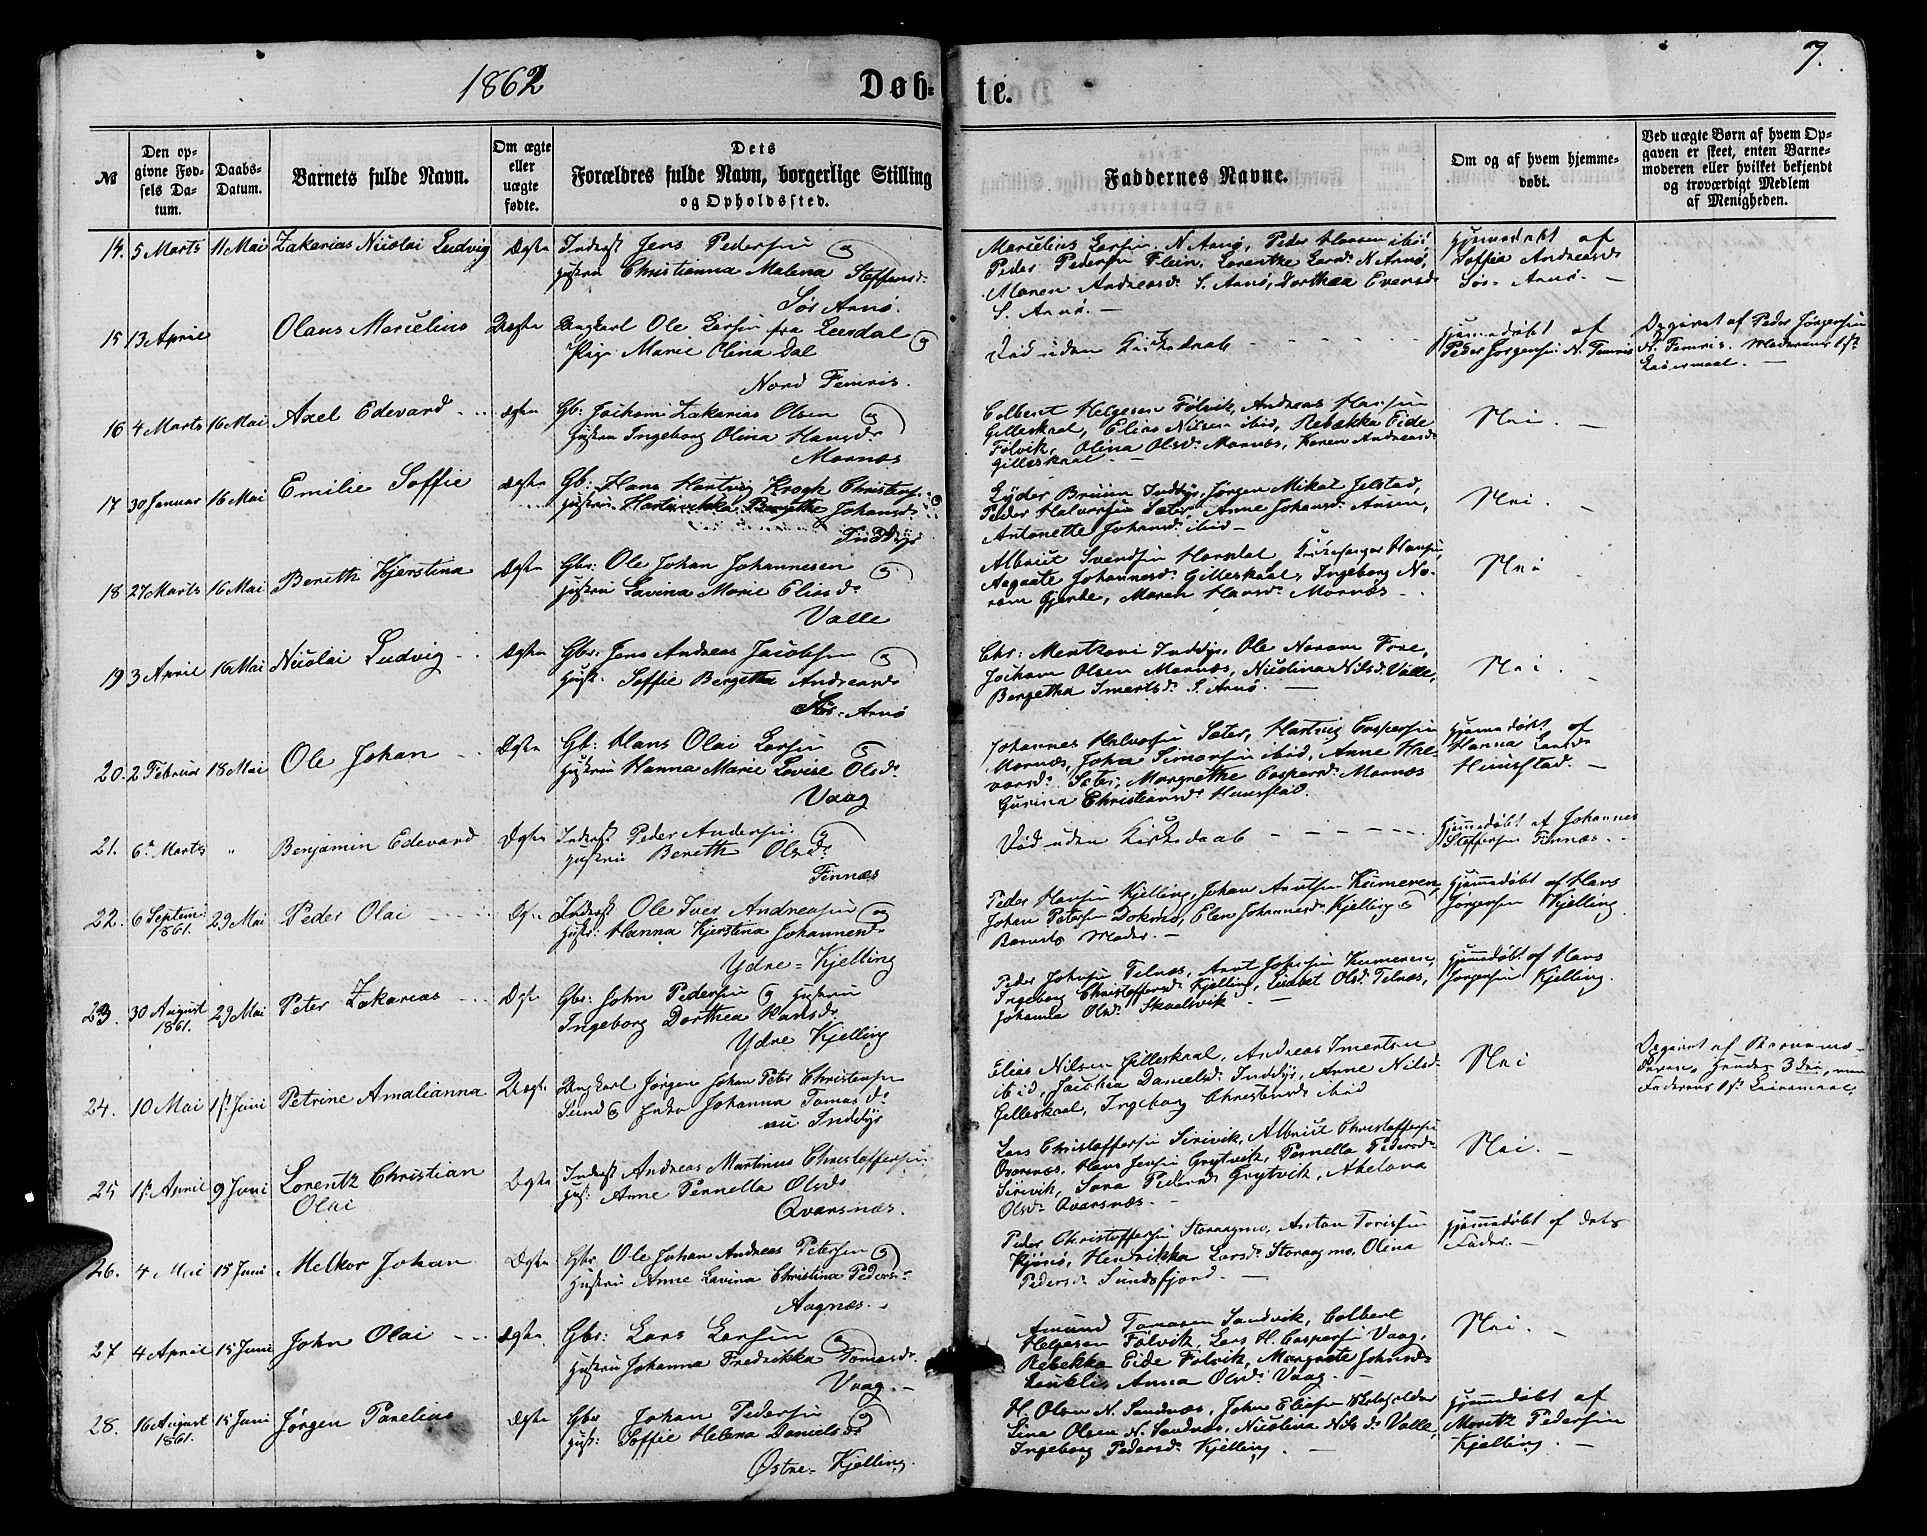 1862
Døb-
te.
7.
№
Den op-
givne Fød-
sels Da-
tum.
Daabs-
Datum.
Barnets fulde Navn.
Om ægte
eller
uægte
fødte.
Dets
Forældres fulde Navn, borgerlige Stilling
og Opholdssted.
Faddernes Navne.
Om og af hvem hjemme-
døbt.
Ved uægte Børn af hvem Op-
gaven er skeet, enten Barne-
moderen eller hvilket bekjendt
og troværdigt Medlem
af Menigheden.
14. 5 Marts 11 Mai Zakarias Nicolai Ludvig Ægte
Inderst Jens Pedersen og
Hustru Christianna Malena Steffensd.
Sør Arnø.
Marcelius Larsen N. Arnø, Peder Hansen ibid
Peder Pedersen Flein, Larentke Larsd. N. Arnø,
Maren Andreasd. S. Arnø, Dorthea Evensd.
S. Arnø. —
Hjemmedøbt af
Soffia Andreasd.
Sør-Arnø. —
15 13 April Olaus Marcelius Uægte
Ungkarl Ole Larsen fra Leerdal og
Pige Marie Olina Dal
Nord Femris.
Død uden Kirkedaab
Hjemmedøbt af
Peder Jørgensen N. Femris
Opgivet af Peder Jørgensen
N. Femris. Moderens 1ste
Leiermaal. —
16 4 Marts 16 Mai Axel Edevard Ægte
Gb: Jochum Zakarias Olsen og
Hustru Ingeborg Olina Hansd.
Mornæs
Colbent Helgesen Følvik, Andreas Hansen
Gilleskaal, Elias Nilsen ibid, Rebekka Eide
Følvik, Olina Olsd. Mornæs, Karen Andreasd.
Gilleskaal. —
Nei. —
17 30 Januar 16 Mai Emilie Soffie Ægte
Gb: Hans Hartvig Krogh Christens. og
Hustru Hartvikka Bergithe Johansd.
Inddyr
Eyder Bruun Inddyr, Jørgen Mikal Jelstad,
Peder Halvorsen Sæter, Anne Johansd. Ausen,
Antonette Johansd. ibid —
Nei. —
18 27 Marts 16 Mai Bereth Kjerstina Ægte
Gbr. Ole Johan Johannesen og
Hustru Lavina Marie Eliasd.
Valle
Albriut Svendsen Horsdal, Kirkesanger Hansen,
Aagaate Johannesd. Gilleskaal, Ingeborg No-
rum Gjerde, Maren Hansd. Mornæs —
Nei
19 3 April 16 Mai Nicolai Ludvig Ægte
Gbr: Jens Andreas Jacobsen og
Hust. Soffie Bergetha Andreasd.
Sør-Arnø
Chr: Mentzoni Inddyr, Ole Norum Fore,
Jochum Olsen Mornæs, Nicolina Nilsd. Valle,
Bergetha Imertsd. S. Arnø. —
Nei —
20. 2 Februar 18 Mai Ole Johan Ægte
Gb: Hans Olai Larsen og
Hustru Hanna Marie Lovise Olsd.
Vaag
Johannes Halvorsen Sæter, Hartvig Caspersen
Mornæs, John Simonsen ibid, Anne Hal-
vorsd. Sæter, Margrethe Caspersd. Mornæs
Gurina Christiansd. Hunstad.
Hjemmedøbt af
Hanna Larsd.
Hunstad. —
21. 6te Marts " Benjamin Edevard Ægte
Inderst Peder Andersen og
Hustru Bereth Olsd.
Finnæs
Død uden Kirkedaab
Hjemmedøbt af Johannes
Steffensen Finnæs. —
22. 6 Septemb. 1861. 29 Mai Peder Olai Ægte
Inderst Ole Iver Andreasen og
Hustr: Hanna Kjerstina Johannesd.
Ydre-Kjelling
Peder Hansen Kjelling, Johan Arntsen Kumeren,
Johan Petersen Dokmo, Elen Johannesd. Kjelling og
Barnets Moder. —
Hjemmedøbt af Hans
Jørgensen Kjelling.
23. 30 August 1861. 29 Mai Peter Zakarias Ægte
Gbr: John Pedersen og Hustru
Ingeborg Dorthea Hansd.
Ydre Kjelling
Peder Johnsen Telnæs, Arnt Johnsen Kumeren,
Ingeborg Christoffersd. Kjelling, Lisbet Olsd. Telnæs,
Johanna Olsd. Skaalsvik —
Hjemmedøbt af Hans
Jørgensen Kjelling.
24. 10 Mai 1ste Juni Petrine Amalianna Uægte
Ungkarl Jørgen Johan Peter Christensen
Sund og Enke Johanna Tomasd.
Inddyr
Elias Nilsen Gilleskaal, Andreas Imertsen
ibid, Jacobia Danielsd. Inddyr, Anne Nilsd.
Gilleskaal, Ingeborg Christensd. ibid
Nei
Opgivet af Barnemo-
deren, hendes 3die, men
Faderens 1st Leiermaal.
25 1ste April 9 Juni Lorentz Christian
Olai Ægte
Inderst Andreas Martinus Christoffersen
Hus: Anne Pernella Olsd.
Qvarsnæs.
Lars Christoffersen Sørivik, Albriut Christoffersen
Qvarsnæs, Hans Jensen Grytvik, Pernella Pedersd.
Sørivik, Sara Pedersd. Grytvik, Abelona
Olsd. Qvarsnæs. —
Nei. —
26. 4 Mai 15 Juni Melkor Johan Ægte
Gbr Ole Johan Andreas Petersen og
Hustru Anne Lavina Christina Pedersd.
Aagnæs. —
Peder Christoffersen Storaagmo, Anton Torissen
Kjønø, Hendrikka Larsd. Storaagmo, Olina
Pedersd. Sundsfjord. —
Hjemmedøbt af dets
Fader. —
27 4 April 15 Juni John Olai Ægte
Gbr: Lars Larsen og
Hustru Johanna Fredrikka Tomasd.
Vaag. —
Amund Tomasen Sandvik, Colbent
Helgesen Følvik, Lars H. Caspersen Vaag,
Rebekka Eide Følvik, Margrete Johnsd.
Anna Olsd. Vaag. —
Nei. —
28. 16 August 1861. 15 Juni Jørgen Parelius Ægte
Gbr Johan Pedersen og
Hust: Soffie Helena Danielsd.
Østre-Kjelling.
H. Olsen N. Sandnæs, John Eliasen
Lina Olsen N. Sandnæs, Nicolina Nilsd. Valle,
Ingeborg Pedersd. Kjelling. —
Hjemmedøbt af
Moritz Pedersen
Kjelling. —